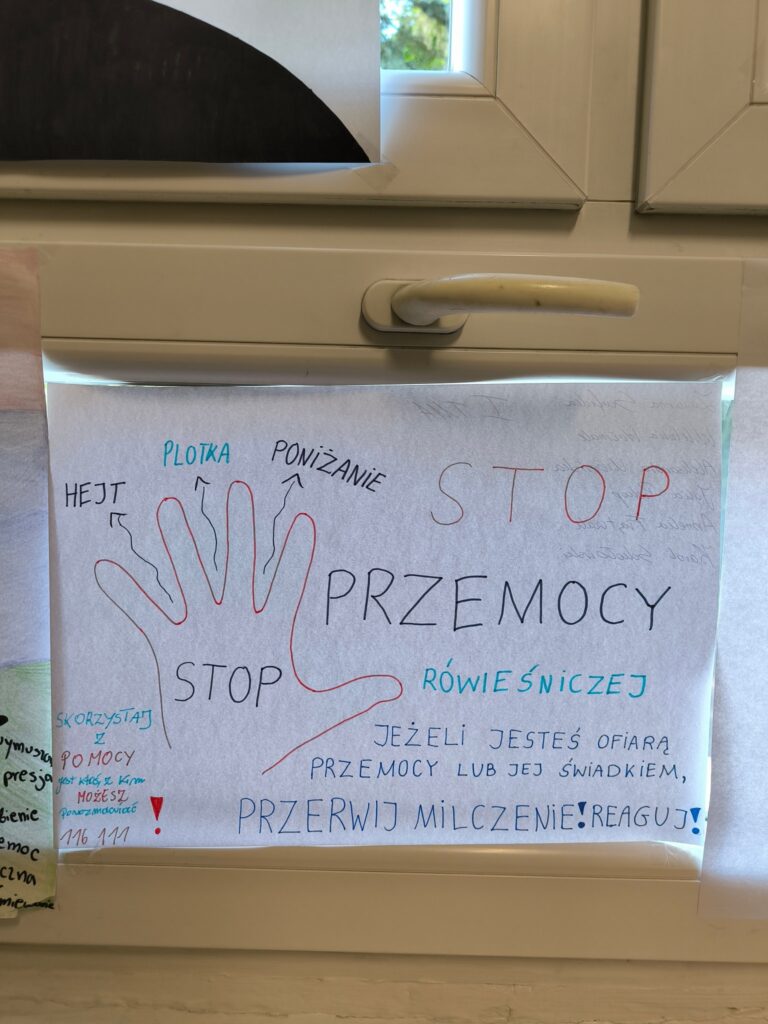 HEJT
PLOTKA
PONIŻANIE
STOP
PRZEMOCY
RÓWIEŚNICZEJ
STOP
JEŻELI JESTEŚ OFIARĄ
PRZEMOCY LUB JEJ ŚWIADKIEM,
PRZERWIJ MILCZENIE! REAGUJ!
SKORZYSTAJ
Z
POMOCY
jest ktoś z kim
MOŻESZ
porozmawiać
116 111 !
presja